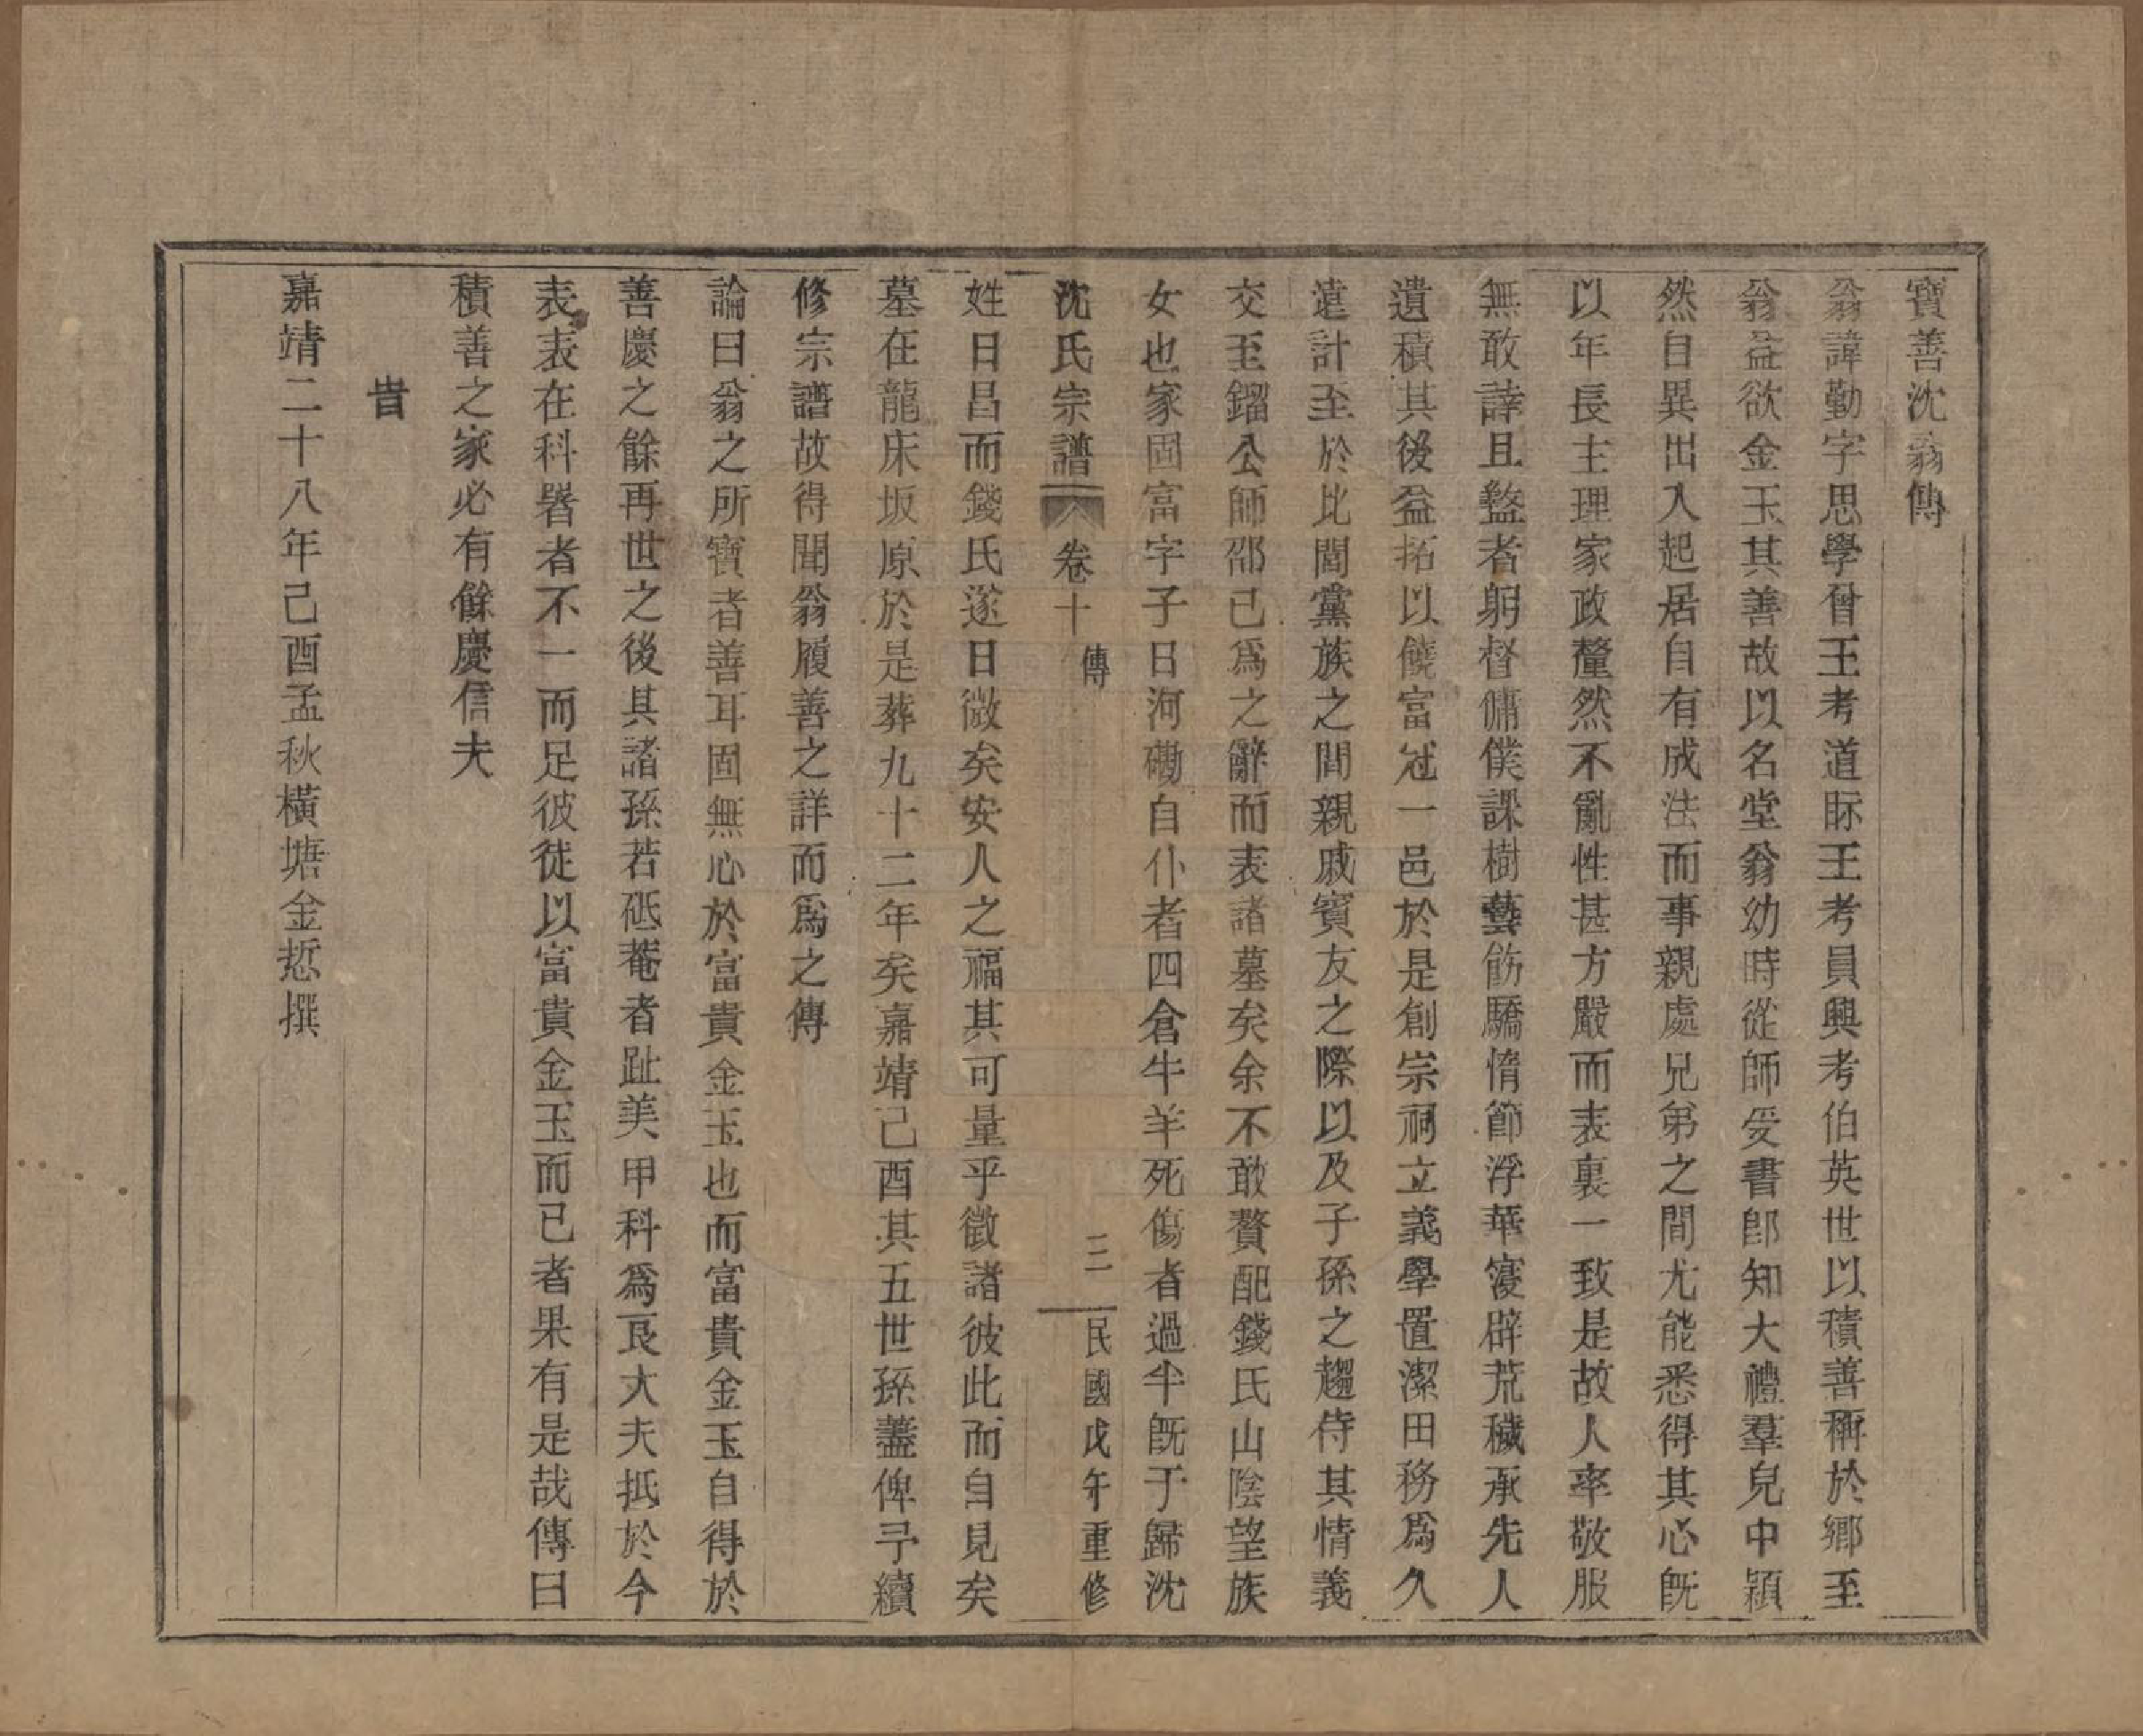 寶善沈翁傳
翁諱勤字思學曾王考道眎王考員興考伯英世以積善稱於鄉至
翁益欲金玉其善故以名堂翁幼時從師受書卽知大禮羣兒中頴
然自異出入起居自有成法而事親處兄弟之間尤能悉得其心旣
以年長主理家政釐然不亂性甚方嚴而表裏一致是故人率敬服
無敢諄且盭者躬督傭僕課樹藝飭驕惰節浮華寖辟荒穢承先人
遺積其後益拓以饒富冠一邑於是創宗祠立義學置潔田務爲久
遠計至於比閭黨族之間親戚賓友之際以及子孫之趨侍其情義
交至鎦公師邵已爲之辭而表諸墓矣余不敢贅配錢氏山陰望族
女也家固富字子日河磡自仆者四倉牛羊死傷者過半旣于歸沈
沈氏宗譜 卷十 傳 三 民國戊午重修
姓日昌而錢氏遂日微矣安人之福其可量乎徵諸彼此而自見矣
墓在龍床坂原於是葬九十二年矣嘉靖己酉其五世孫蓋俾予續
修宗譜故得聞翁履善之詳而爲之傳
論曰翁之所寶者善耳固無心於富貴金玉也而富貴金玉自得於
善慶之餘再世之後其諸孫若砥菴者趾美甲科爲良大夫抵於今
表表在科畧者不一而足彼徒以富貴金玉而已者果有是哉傳曰
積善之家必有餘慶信夫
旹
嘉靖二十八年己酉孟秋橫塘金悊撰